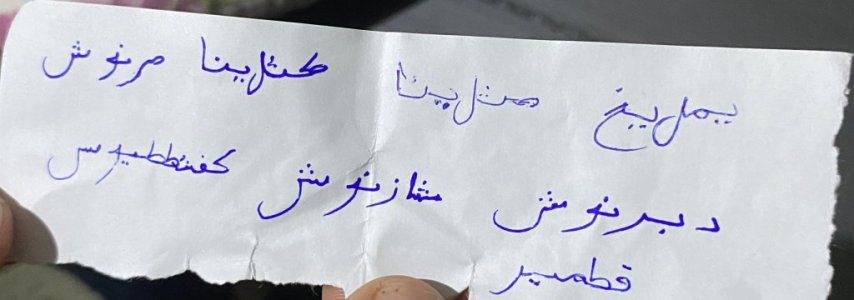 يمليخ مثلينا مكثلينا مرنوش
دبرنوش شازنوش كفشططيوس
قطمير